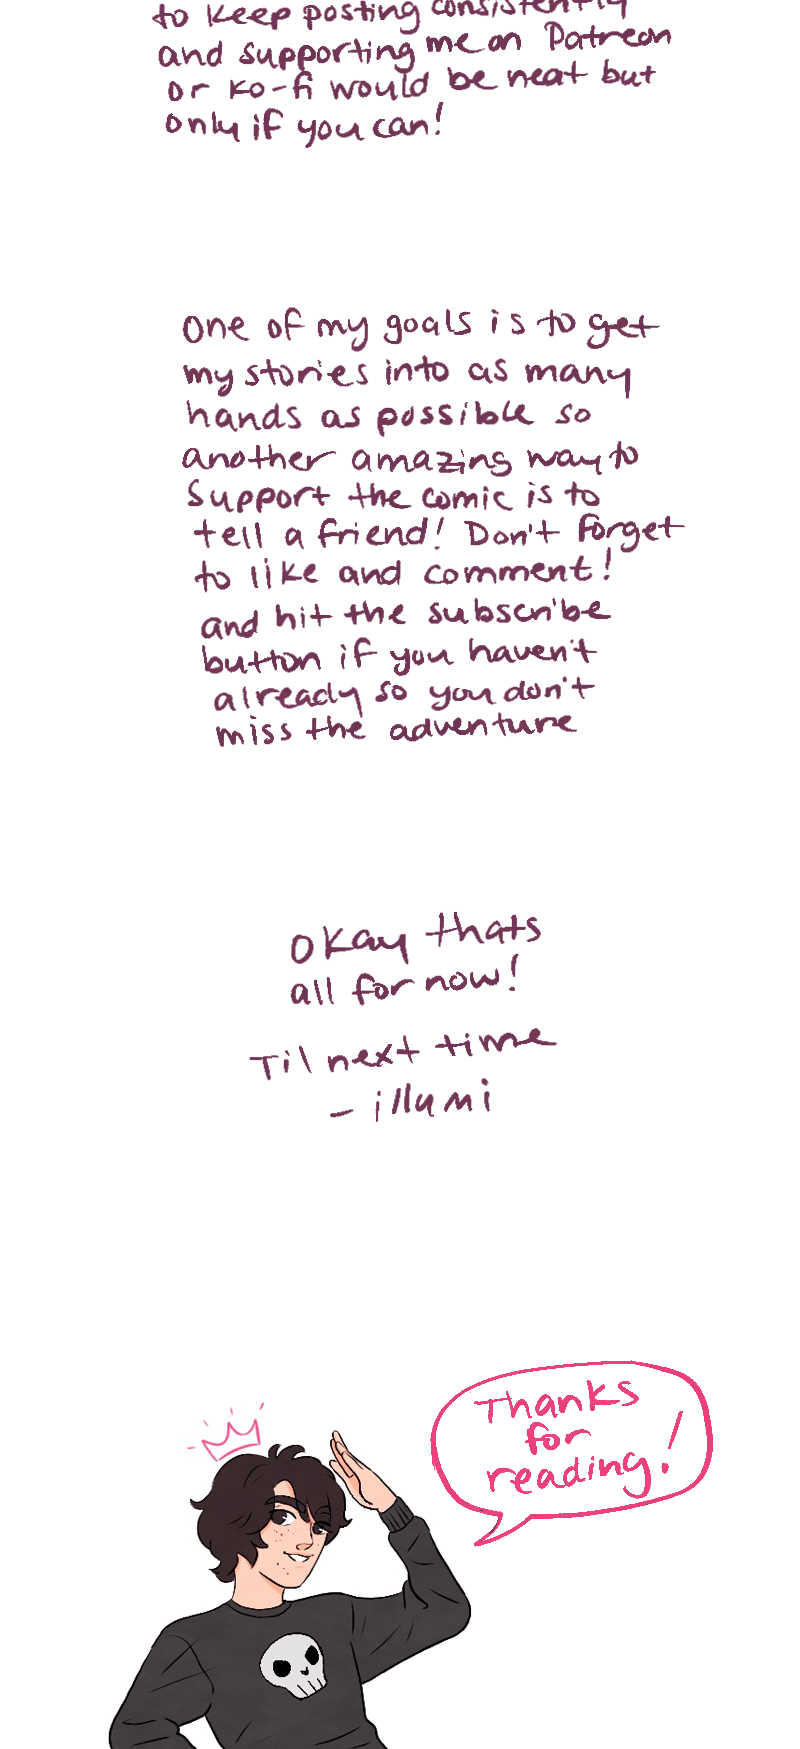 to keep posting consistently
and supporting me on Patreon
or ko-fi would be neat but
only if you can!
One of my goals is to get
my stories into as many
hands as possible so
another amazing way to
support the comic is to
tell a friend! Don't forget
to like and comment!
and hit the subscribe
button if you haven't
already so you don't
miss the adventure
Okay thats
all for now!
Til next time
- illumi
Thanks
for
reading!